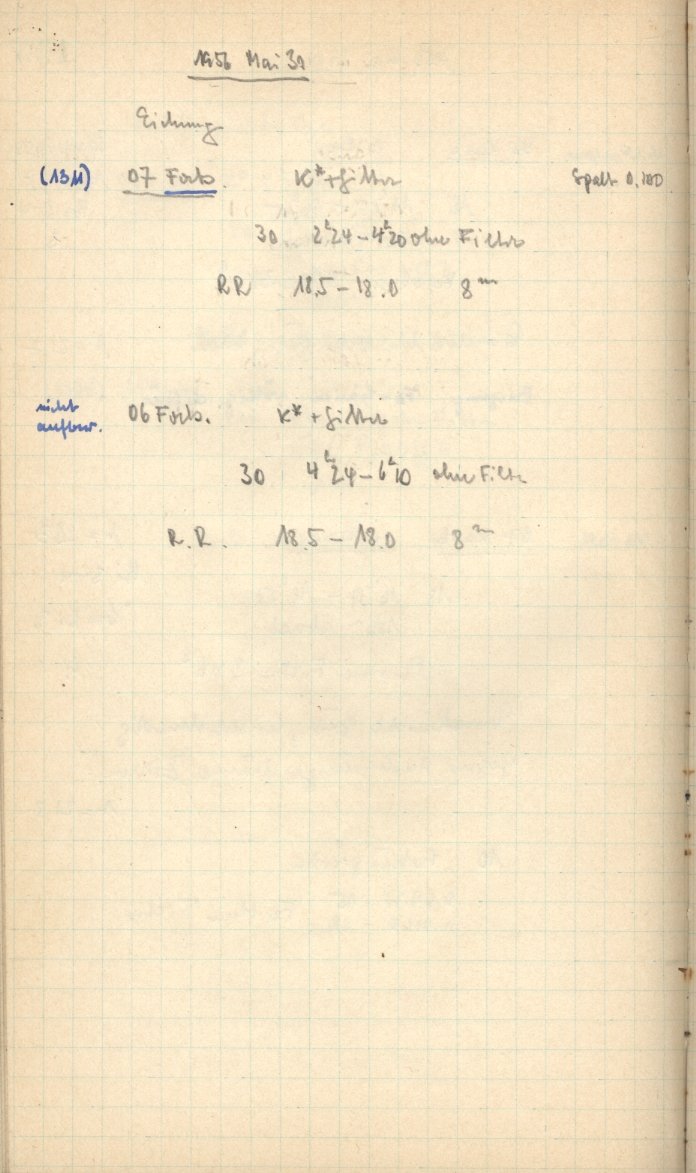 1956 Mai 31
Eichung
(1311) 07 Forb. K* + Gitter Spalt 0,100
30 2ʰ24 – 4ʰ20 ohne Filter
RR 18.5 – 18.0 8ᵐ
nicht aufbew. 06 Forb. K* + Gitter
30 4ʰ24 – 6ʰ10 ohne Filter
R.R. 18.5 – 18.0 8ᵐ